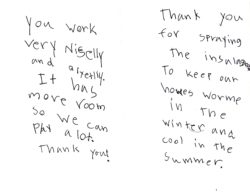 you work
very Niselly
and qiyetlly.
It has
more room
so we can
Play a lot.
Thank you!
Thank you
for spraying
The insulas
To keep our
homes worme
in The
winter and
cool in the
summer.